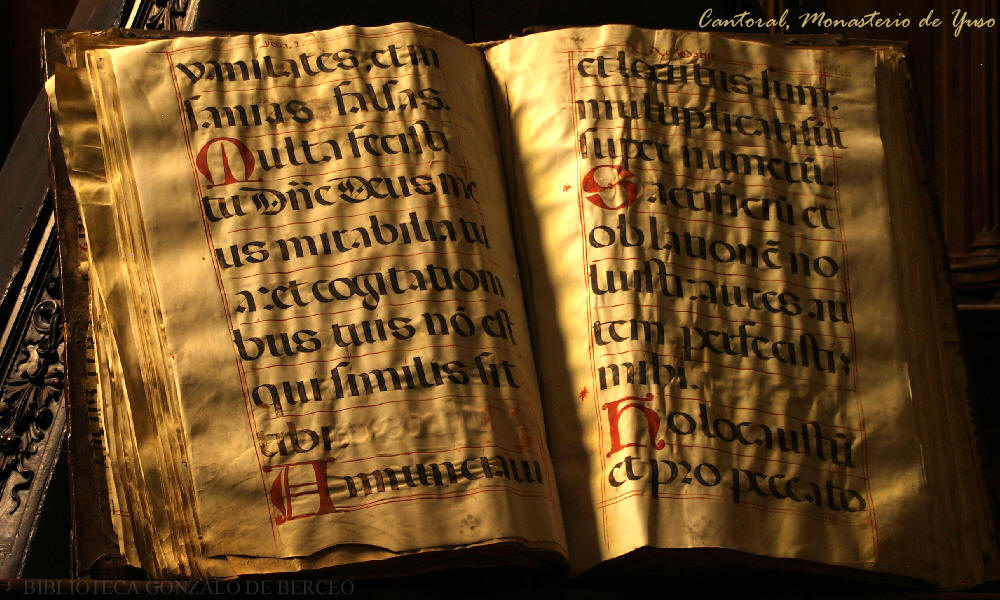 Cantoral, Monasterio de Yuso
vanitates: et in
sanias falsas.
Multa fecisti
tu Dñe Deus me
us mirabilia tu
a: et cogitation
bus tuis nõ est
qui similis sit
tibi.
Annunciaui
et locutus sum:
multiplicati sũt
super numerũ.
Sacrificiũ et
oblationẽ no
luisti: aures au
tem perfecisti
mihi.
Holocaustũ
et pro peccato
BIBLIOTECA GONZALO DE BERCEO